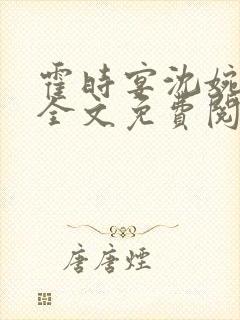 霍时宴沈婉
全文免費閱
唐唐煙